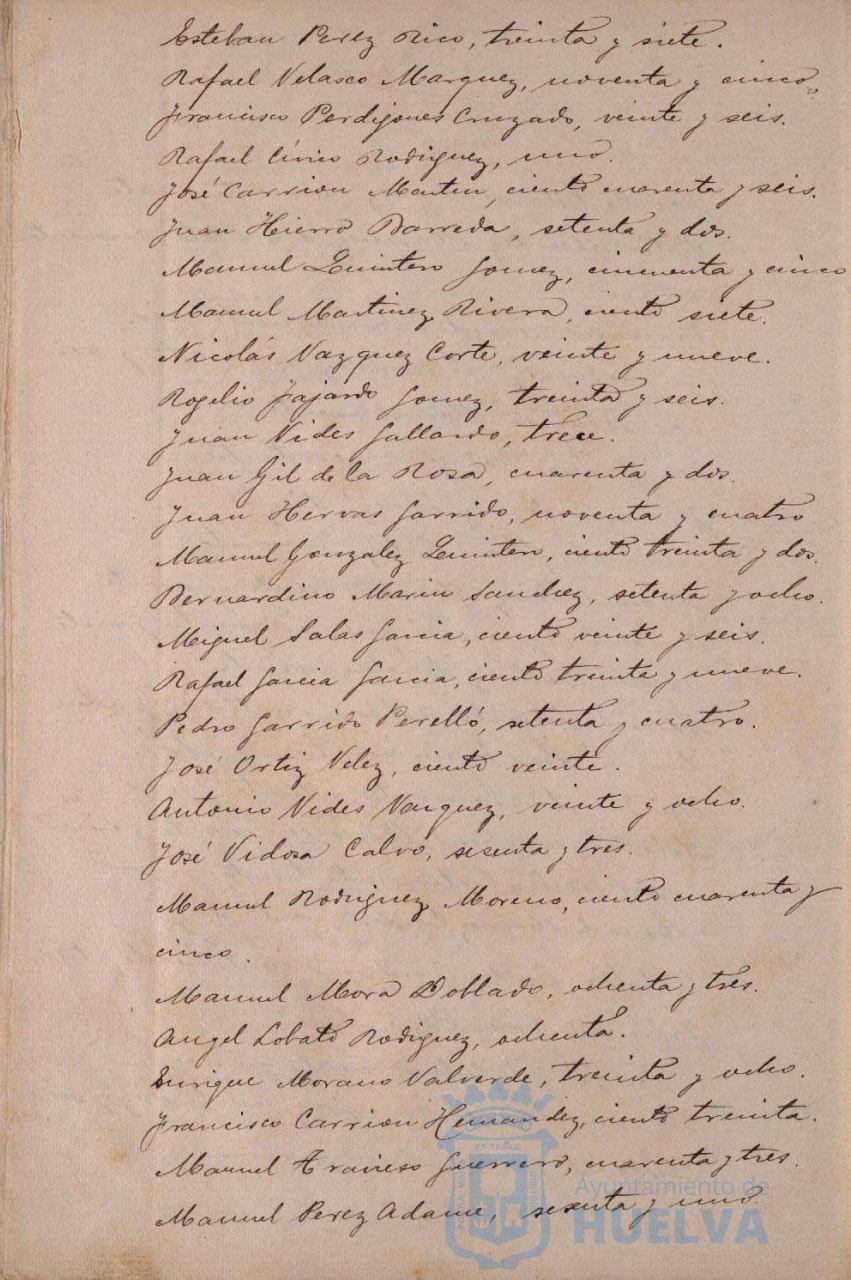 Esteban Perez Rico, treinta y siete.
Rafael Velasco Marquez, noventa y cinco.
Francisco Perdigones Cruzado, veinte y seis.
Rafael Cívico Rodriguez, uno.
José Carrion Martin, ciento cuarenta y seis.
Juan Hierro Barreda, setenta y dos.
Manuel Quintero Gomez, cincuenta y cinco
Manuel Martinez Rivera, ciento siete.
Nicolás Vazquez Corte, veinte y nueve.
Rogelio Fajardo Gomez, treinta y seis.
Juan Vides Gallardo, trece.
Juan Gil de la Rosa, cuarenta y dos.
Juan Hervas Garrido, noventa y cuatro
Manuel Gonzalez Quintero, ciento treinta y dos.
Bernardino Marin Sanchez, setenta y ocho.
Miguel Salas Garcia, ciento veinte y seis.
Rafael Garcia Garcia, ciento treinta y nueve.
Pedro Garrido Perelló, setenta y cuatro.
José Ortiz Velez, ciento veinte.
Antonio Vides Vazquez, veinte y ocho.
José Vidosa Calvo, sesenta y tres.
Manuel Rodriguez Moreno, ciento cuarenta y
cinco.
Manuel Mora Doblado, ochenta y tres.
Angel Lobato Rodriguez, ochenta.
Enrique Morano Valverde, treinta y ocho.
Francisco Carrion Hernandez, ciento treinta.
Manuel Guerrero, cuarenta y tres.
Manuel Perez Adame, sesenta y uno.
Ayuntamiento de
HUELVA